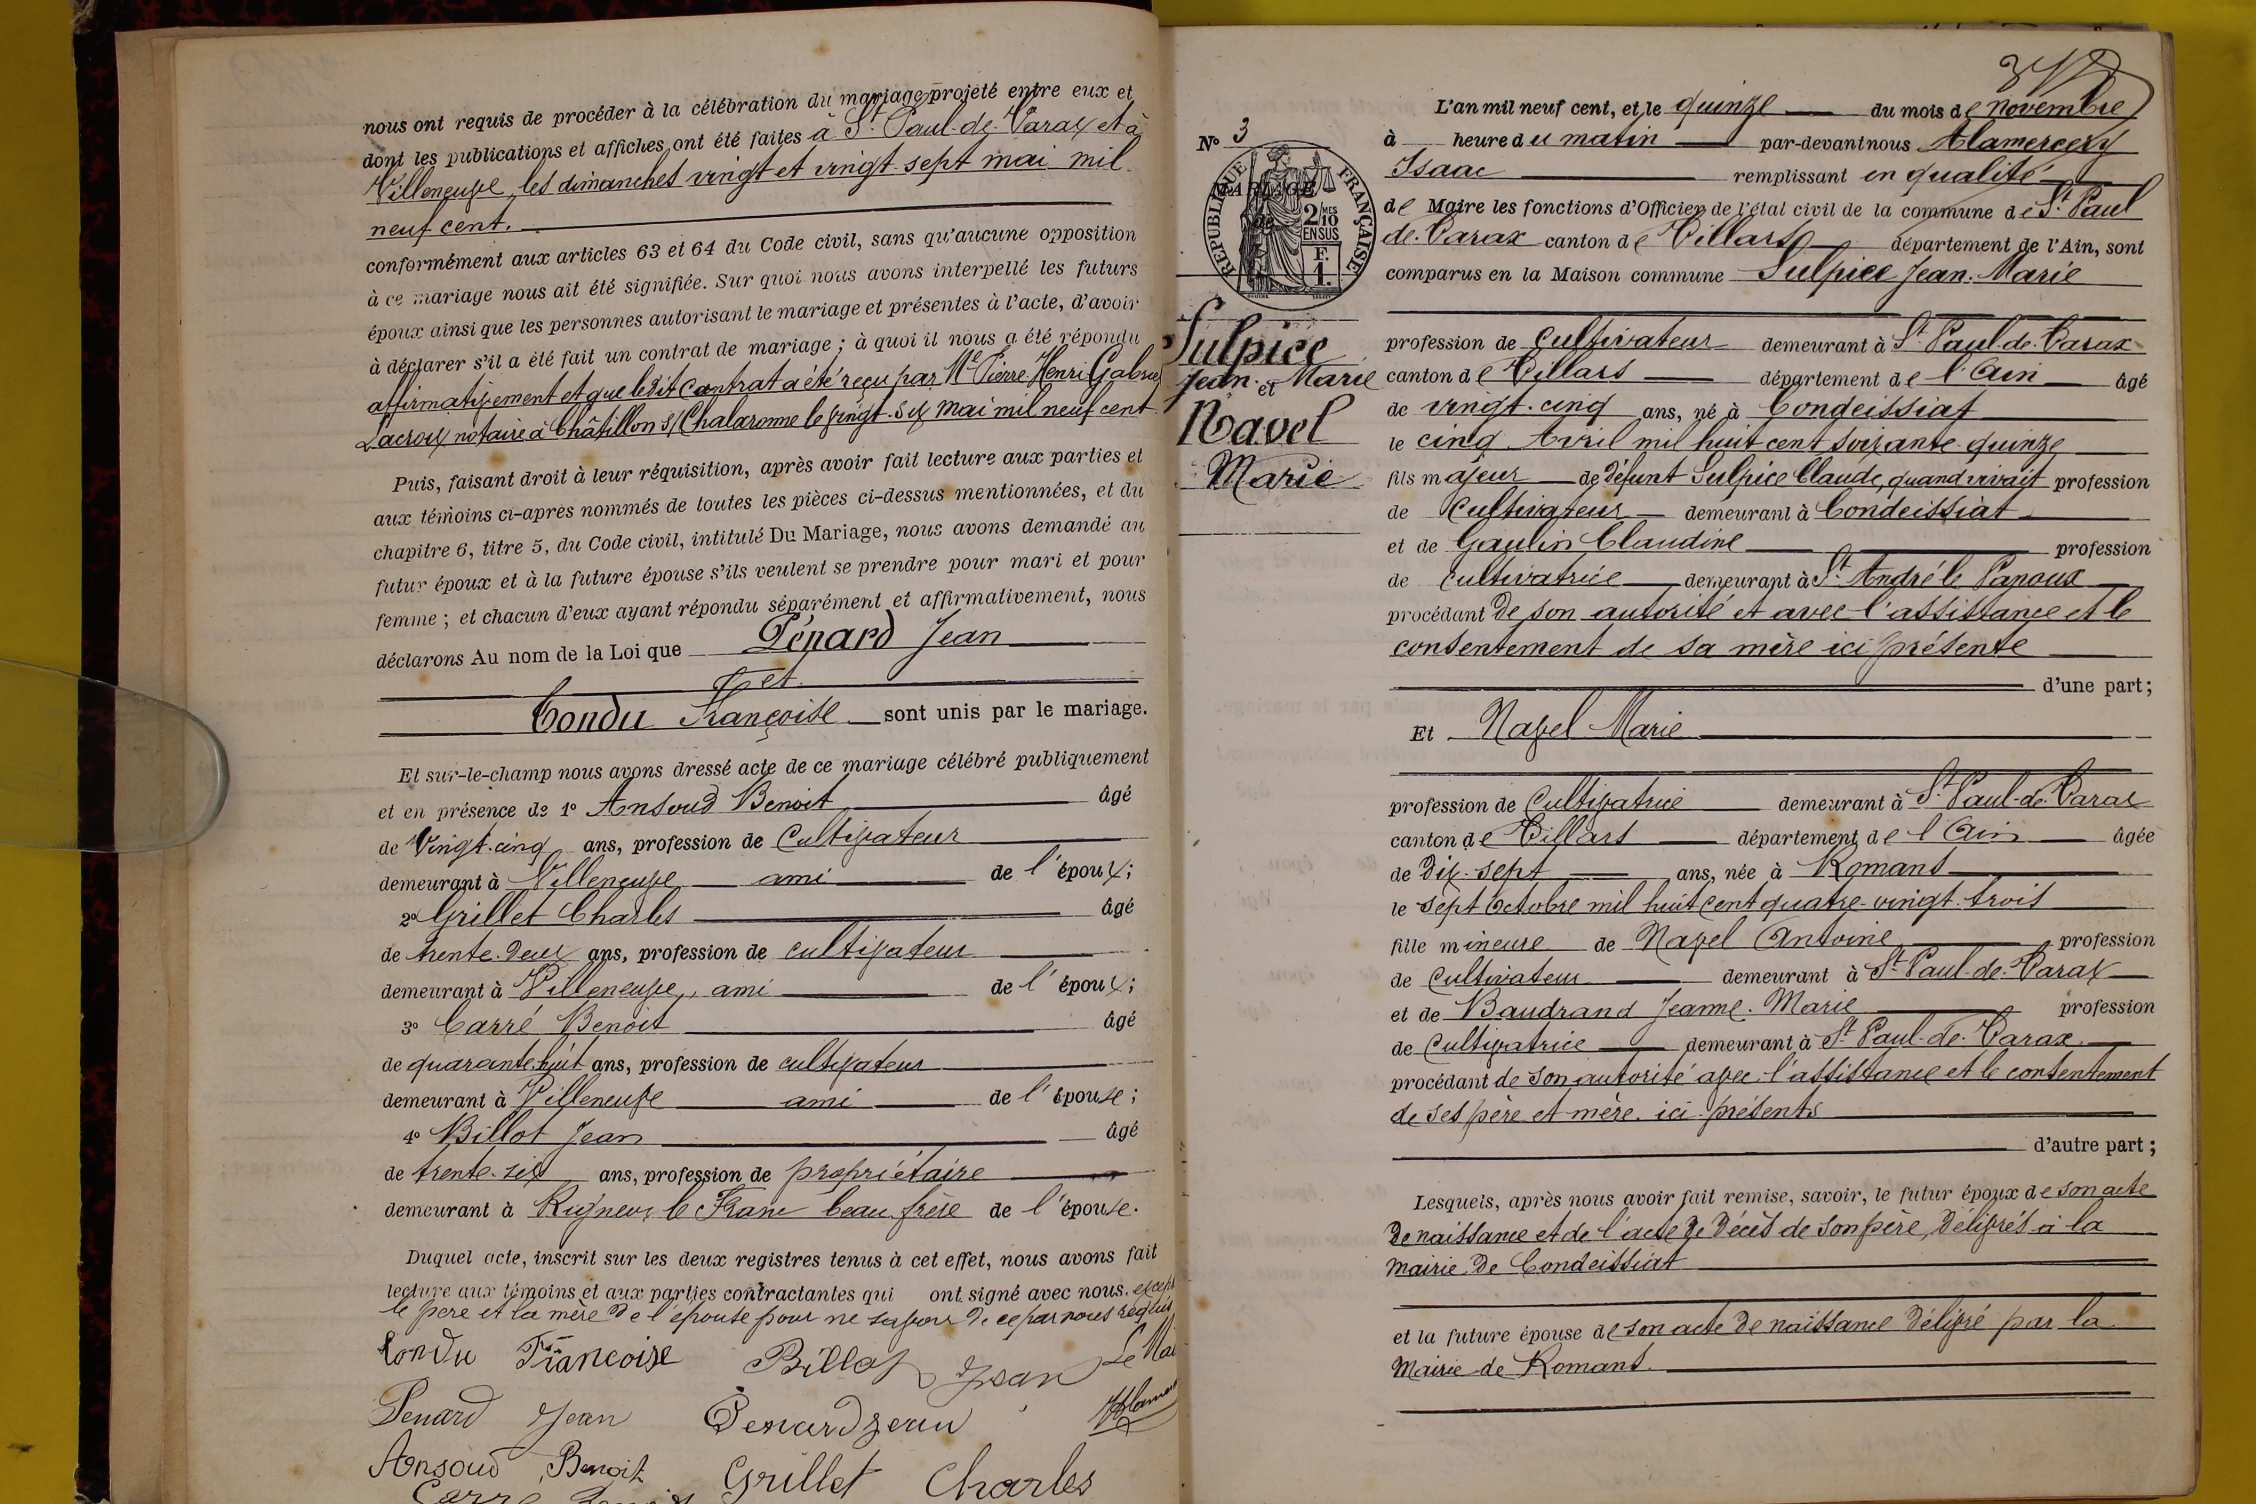 nous ont requis de procéder à la célébration du mariage projeté entre eux et
dont les publications et affiches ont été faites à St Paul-de-Varax et à
Villeneuve, les dimanches vingt et vingt-sept mai mil
neuf cent.
conformément aux articles 63 et 64 du Code civil, sans qu'aucune opposition
à ce mariage nous ait été signifiée. Sur quoi nous avons interpellé les futurs
époux ainsi que les personnes autorisant le mariage et présentes à l'acte, d'avoir
à déclarer s'il a été fait un contrat de mariage ; à quoi il nous a été répondu
affirmativement et que ledit contrat a été reçu par Me Pierre Henri Gabriel
Lacroix notaire à Châtillon s/ Chalaronne le vingt-six mai mil neuf cent
Puis, faisant droit à leur réquisition, après avoir fait lecture aux parties et
aux témoins ci-après nommés de toutes les pièces ci-dessus mentionnées, et du
chapitre 6, titre 5, du Code civil, intitulé Du Mariage, nous avons demandé au
futur époux et à la future épouse s'ils veulent se prendre pour mari et pour
femme ; et chacun d'eux ayant répondu séparément et affirmativement, nous
déclarons Au nom de la Loi que Pénard Jean
et
Condu Françoise sont unis par le mariage.
Et sur-le-champ nous avons dressé acte de ce mariage célébré publiquement
et en présence de 1° Ansoud Benoit âgé
de vingt-cinq ans, profession de cultivateur
demeurant à Villeneuve ami de l'époux ;
2° Grillet Charles âgé
de trente-deux ans, profession de cultivateur
demeurant à Villeneuve, ami de l'époux ;
3° Carré Benoit âgé
de quarante-huit ans, profession de cultivateur
demeurant à Villeneuve ami de l'épouse ;
4° Billot Jean âgé
de trente-six ans, profession de propriétaire
demeurant à Rigneux le Franc beau frère de l'épouse.
Duquel acte, inscrit sur les deux registres tenus à cet effet, nous avons fait
lecture aux témoins et aux parties contractantes qui ont signé avec nous. except
le père et la mère de l'épouse pour ne savoir de ce par nous requis
Condu Françoise Billot Jean Le Mai
Penard Jean Penard Jean
Ansoud Benoit Grillet Charles
Carré Benoit
N° 3
MARIAGE
de
RÉPUBLIQUE FRANÇAISE
2/MES 10
EN SUS
F.
1.
Sulpice
Jean-Marie
et
Navel
Marie
L'an mil neuf cent, et le quinze du mois de novembre
à heure du matin par-devant nous Alamercery
Isaac remplissant en qualité
de Maire les fonctions d'Officier de l'état civil de la commune de St Paul
de-Varax canton de Villars département de l'Ain, sont
comparus en la Maison commune Sulpice Jean-Marie
profession de cultivateur demeurant à St Paul-de-Varax
canton de Villars département de l'Ain âgé
de vingt-cinq ans, né à Condeissiat
le cinq Avril mil huit cent soixante-quinze
fils majeur de défunt Sulpice Claude, quand vivait profession
de cultivateur demeurant à Condeissiat
et de Gaulin Claudine profession
de cultivatrice demeurant à St André le Panoux
procédant de son autorité et avec l'assistance et le
consentement de sa mère ici présente
d'une part ;
Et Navel Marie
profession de cultivatrice demeurant à St Paul-de-Varax
canton de Villars département de l'Ain âgée
de dix-sept ans, née à Romans
le sept Octobre mil huit cent quatre-vingt-trois
fille mineure de Navel Antoine profession
de cultivateur demeurant à St Paul-de-Varax
et de Baudrand Jeanne-Marie profession
de cultivatrice demeurant à St Paul-de-Varax
procédant de son autorité avec l'assistance et le consentement
de ses père et mère ici présents
d'autre part ;
Lesquels, après nous avoir fait remise, savoir, le futur époux de son acte
de naissance et de l'acte de décès de son père, délivrés à la
mairie de Condeissiat
et la future épouse de son acte de naissance délivré par la
Mairie de Romans.